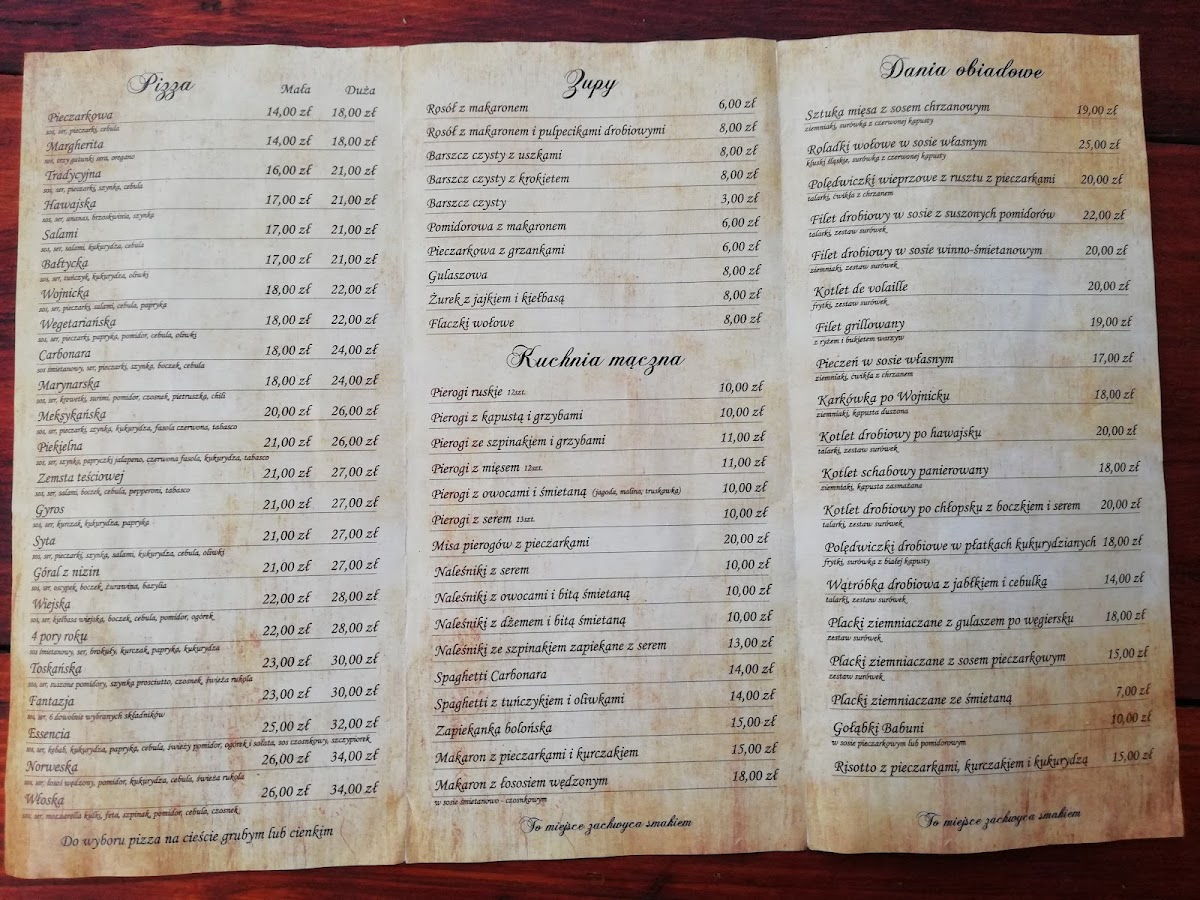 Pizza
Mała Duża
Pieczarkowa 14,00 zł 18,00 zł
sos, ser, pieczarki, cebula
Margherita 14,00 zł 18,00 zł
sos, trzy gatunki sera, oregano
Tradycyjna 16,00 zł 21,00 zł
sos, ser, pieczarki, szynka, cebula
Hawajska 17,00 zł 21,00 zł
sos, ser, ananas, brzoskwinia, szynka
Salami 17,00 zł 21,00 zł
sos, ser, salami, kukurydza, cebula
Bałtycka 17,00 zł 21,00 zł
sos, ser, tuńczyk, kukurydza, oliwki
Wojnicka 18,00 zł 22,00 zł
sos, ser, pieczarki, salami, cebula, papryka
Wegetariańska 18,00 zł 22,00 zł
sos, ser, pieczarki, papryka, pomidor, cebula, oliwki
Carbonara 18,00 zł 24,00 zł
sos śmietanowy, ser, pieczarki, szynka, boczek, cebula
Marynarska 18,00 zł 24,00 zł
sos, ser, krewetki, surimi, pomidor, czosnek, pietruszka, chili
Meksykańska 20,00 zł 26,00 zł
sos, ser, pieczarki, szynka, kukurydza, fasola czerwona, tabasco
Piekielna 21,00 zł 26,00 zł
sos, ser, szynka, papryczki jalapeno, czerwona fasola, kukurydza, tabasco
Zemsta teściowej 21,00 zł 27,00 zł
sos, ser, salami, boczek, cebula, pepperoni, tabasco
Gyros 21,00 zł 27,00 zł
sos, ser, kurczak, kukurydza, papryka
Syta 21,00 zł 27,00 zł
sos, ser, pieczarki, szynka, salami, kukurydza, cebula, oliwki
Góral z nizin 21,00 zł 27,00 zł
sos, ser, oscypek, boczek, żurawina, bazylia
Wiejska 22,00 zł 28,00 zł
sos, ser, kiełbasa wiejska, boczek, cebula, pomidor, ogórek
4 pory roku 22,00 zł 28,00 zł
sos śmietanowy, ser, brokuły, kurczak, papryka, kukurydza
Toskańska 23,00 zł 30,00 zł
sos, ser, suszone pomidory, szynka prosciutto, czosnek, świeża rukola
Fantazja 23,00 zł 30,00 zł
sos, ser, 6 dowolnie wybranych składników
Essencia 25,00 zł 32,00 zł
sos, ser, kebab, kukurydza, papryka, cebula, świeży pomidor, ogórek i sałata, sos czosnkowy, szczypiorek
Norweska 26,00 zł 34,00 zł
sos, ser, łosoś wędzony, pomidor, kukurydza, cebula, świeża rukola
Włoska 26,00 zł 34,00 zł
sos, ser, mozzarella kulki, feta, szpinak, pomidor, cebula, czosnek
Do wyboru pizza na cieście grubym lub cienkim
Zupy
Rosół z makaronem 6,00 zł
Rosół z makaronem i pulpecikami drobiowymi 8,00 zł
Barszcz czysty z uszkami 8,00 zł
Barszcz czysty z krokietem 8,00 zł
Barszcz czysty 3,00 zł
Pomidorowa z makaronem 6,00 zł
Pieczarkowa z grzankami 6,00 zł
Gulaszowa 8,00 zł
Żurek z jajkiem i kiełbasą 8,00 zł
Flaczki wołowe 8,00 zł
Kuchnia mączna
Pierogi ruskie 12szt. 10,00 zł
Pierogi z kapustą i grzybami 10,00 zł
Pierogi ze szpinakiem i grzybami 11,00 zł
Pierogi z mięsem 12szt. 11,00 zł
Pierogi z owocami i śmietaną (jagoda, malina, truskawka) 10,00 zł
Pierogi z serem 13szt. 10,00 zł
Misa pierogów z pieczarkami 20,00 zł
Naleśniki z serem 10,00 zł
Naleśniki z owocami i bitą śmietaną 10,00 zł
Naleśniki z dżemem i bitą śmietaną 10,00 zł
Naleśniki ze szpinakiem zapiekane z serem 13,00 zł
Spaghetti Carbonara 14,00 zł
Spaghetti z tuńczykiem i oliwkami 14,00 zł
Zapiekanka bolońska 15,00 zł
Makaron z pieczarkami i kurczakiem 15,00 zł
Makaron z łososiem wędzonym 18,00 zł
w sosie śmietanowo - czosnkowym
To miejsce zachwyca smakiem
Dania obiadowe
Sztuka mięsa z sosem chrzanowym 19,00 zł
ziemniaki, surówka z czerwonej kapusty
Roladki wołowe w sosie własnym 25,00 zł
kluski śląskie, surówka z czerwonej kapusty
Polędwiczki wieprzowe z rusztu z pieczarkami 20,00 zł
talarki, ćwikła z chrzanem
Filet drobiowy w sosie z suszonych pomidorów 22,00 zł
talarki, zestaw surówek
Filet drobiowy w sosie winno-śmietanowym 20,00 zł
ziemniaki, zestaw surówek
Kotlet de volaille 20,00 zł
frytki, zestaw surówek
Filet grillowany 19,00 zł
z ryżem i bukietem warzyw
Pieczeń w sosie własnym 17,00 zł
ziemniaki, ćwikła z chrzanem
Karkówka po Wojnicku 18,00 zł
ziemniaki, kapusta duszona
Kotlet drobiowy po hawajsku 20,00 zł
talarki, zestaw surówek
Kotlet schabowy panierowany 18,00 zł
ziemniaki, kapusta zasmażana
Kotlet drobiowy po chłopsku z boczkiem i serem 20,00 zł
talarki, zestaw surówek
Polędwiczki drobiowe w płatkach kukurydzianych 18,00 zł
frytki, surówka z białej kapusty
Wątróbka drobiowa z jabłkiem i cebulką 14,00 zł
talarki, zestaw surówek
Placki ziemniaczane z gulaszem po węgiersku 18,00 zł
zestaw surówek
Placki ziemniaczane z sosem pieczarkowym 15,00 zł
zestaw surówek
Placki ziemniaczane ze śmietaną 7,00 zł
Gołąbki Babuni 10,00 zł
w sosie pieczarkowym lub pomidorowym
Risotto z pieczarkami, kurczakiem i kukurydzą 15,00 zł
To miejsce zachwyca smakiem